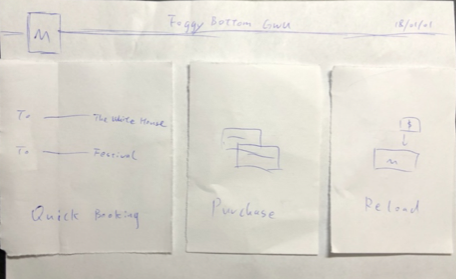 M
Foggy Bottom GWU
18/01/01
To The White House
To
Quick Booking
Purchase
$
M
Reload